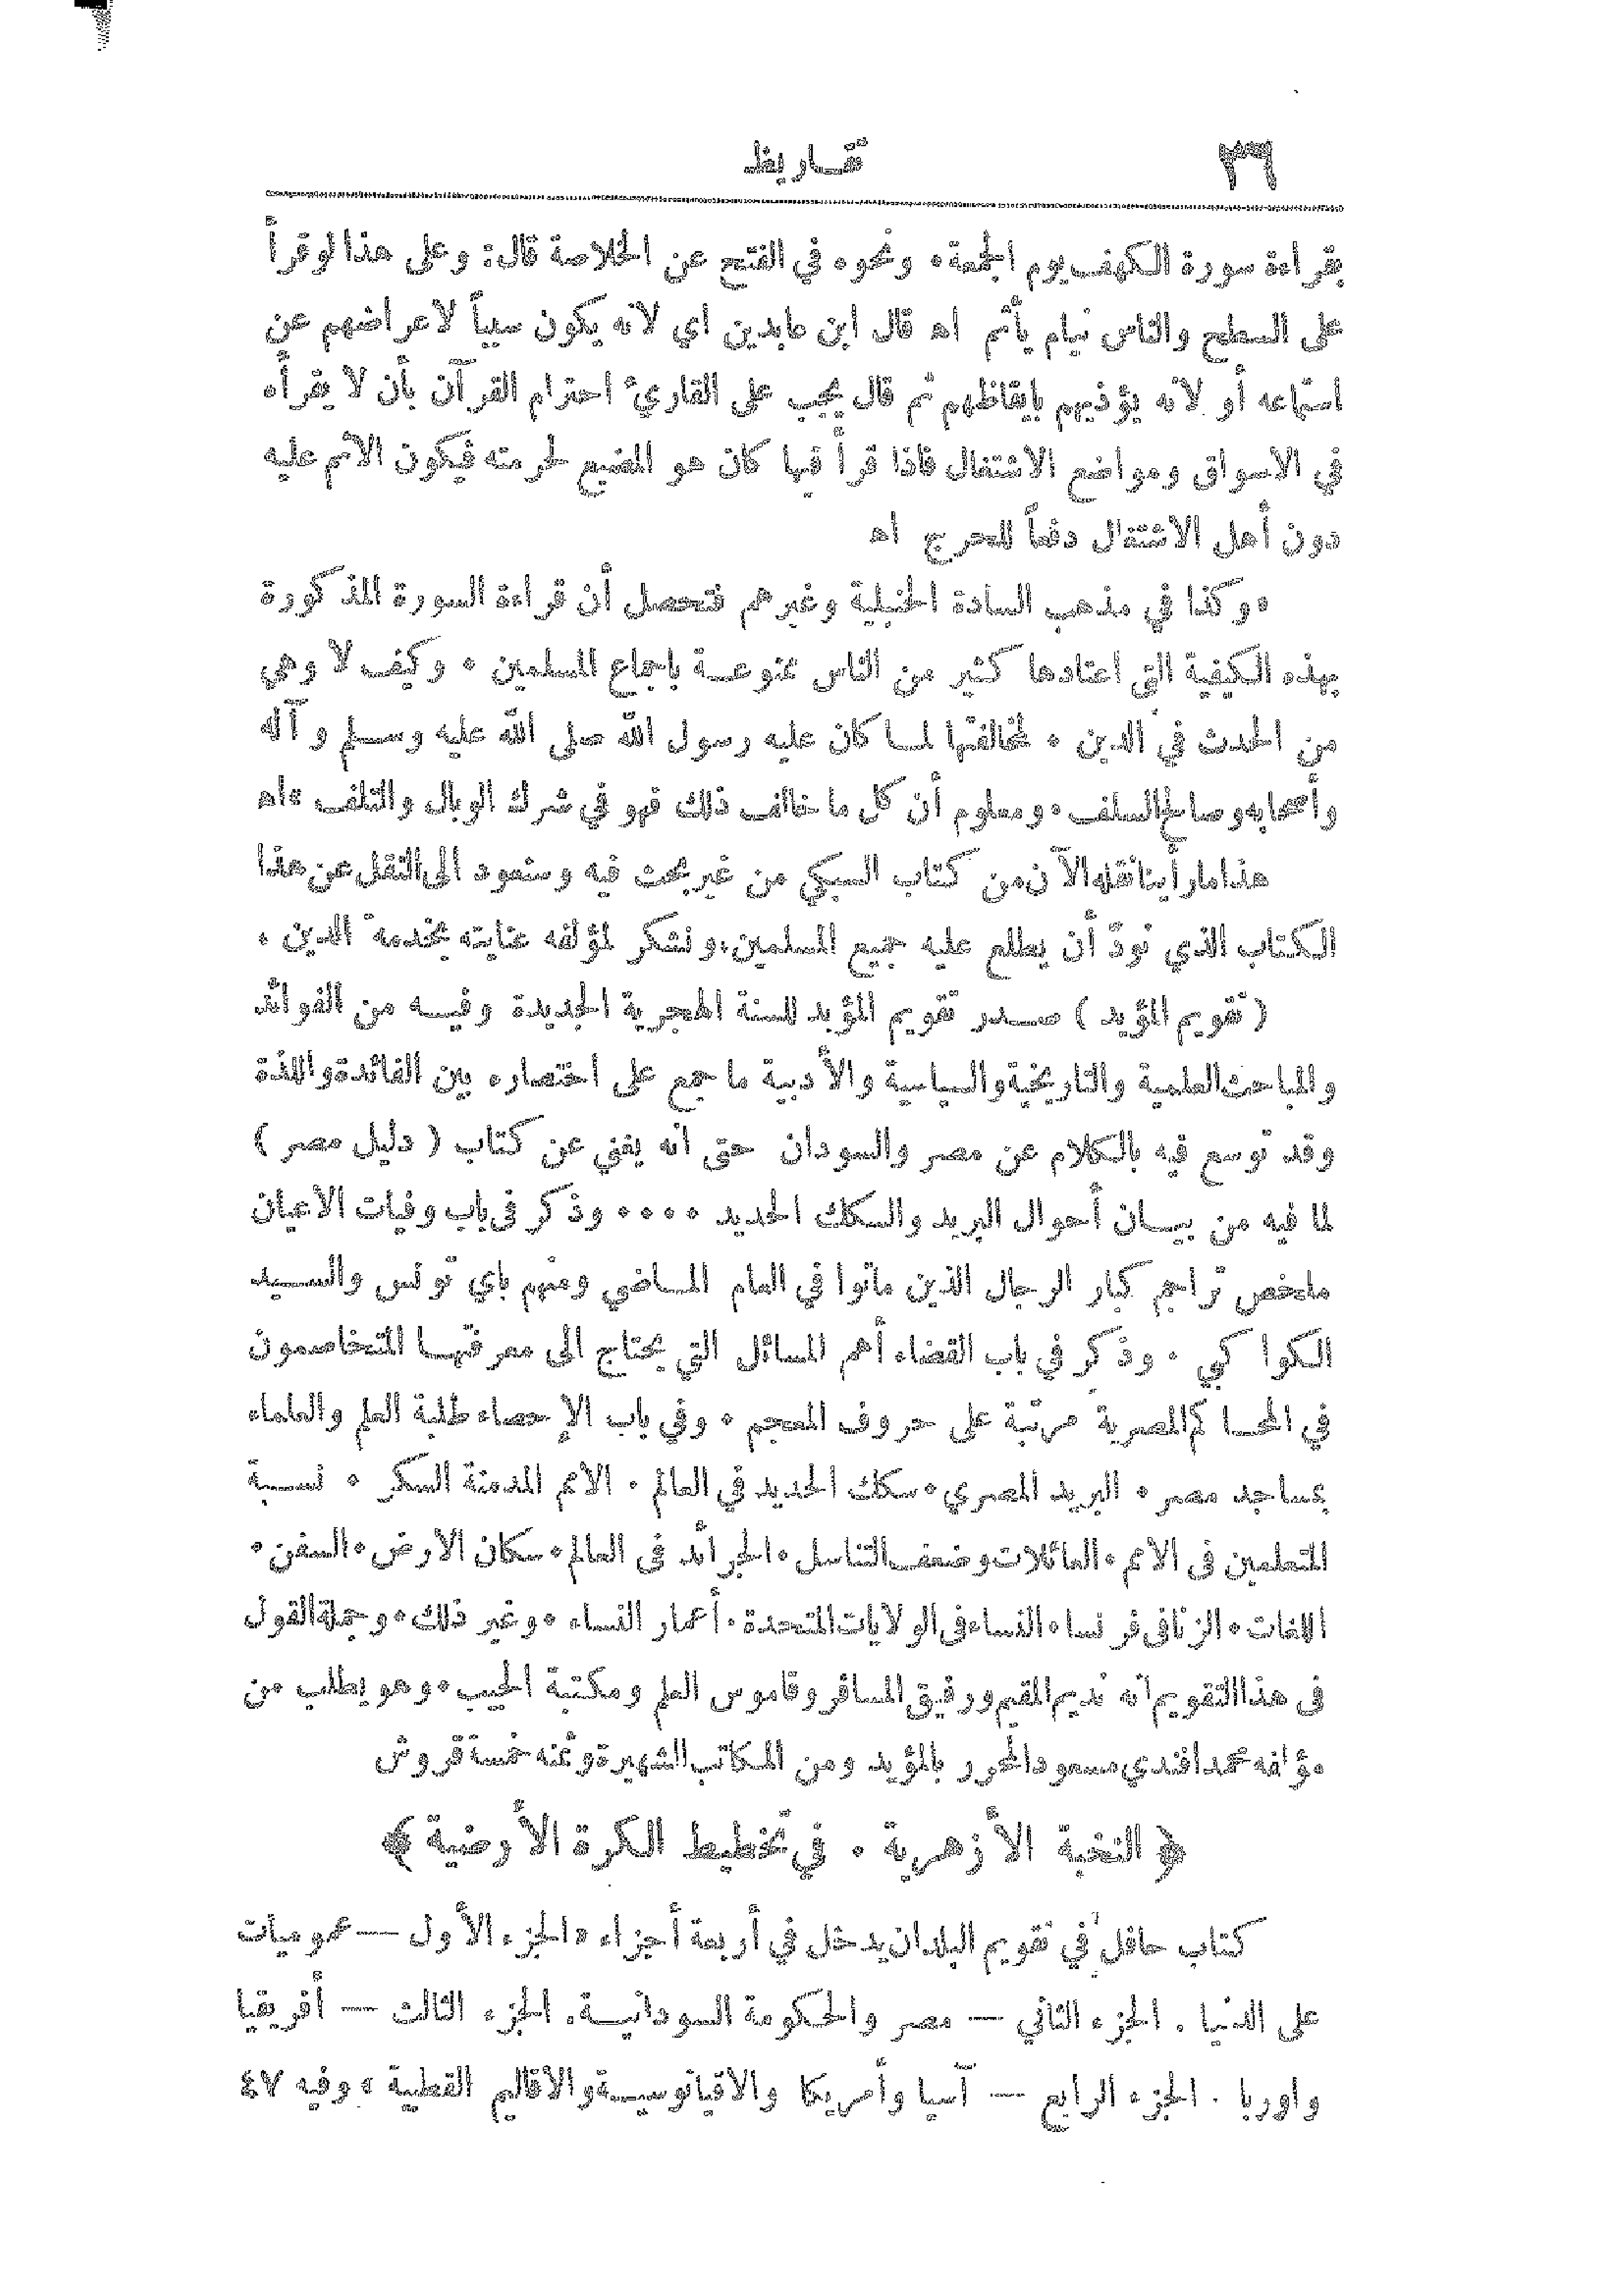 ٣٦
تقاريظ
بقراءة سورة الكهف يوم الجمعة . ونحوه في الفتح عن الخلاصة قال: وعلى هذا لو قرأ
على السطح والناس نيام يأثم اه قال ابن عابدين اي لانه يكون سبباً لاعراضهم عن
استماعه أو لانه يؤذيهم بإيقاظهم ثم قال يجب على القارئ احترام القرآن بأن لا يقرأه
في الاسواق ومواضع الاشتغال فاذا قرأ فيها كان هو المضيع لحرمته فيكون الاثم عليه
دون أهل الاشتغال دفعاً للحرج اه
وكذا في مذهب السادة الحنبلية وغيرهم فتحصل أن قراءة السورة المذكورة
بهذه الكيفية التي اعتادها كثير من الناس ممنوعة باجماع المسلمين . وكيف لا وهي
من الحدث في الدين . لمخالفتها لما كان عليه رسول الله صلى الله عليه وسلم وآله
وأصحابه وصالح السلف . ومعلوم أن كل ما خالف ذلك فهو في شرك الوبال والتلف . اه
هذا ما رأينا نقله الآن من كتاب السبكي من غير بحث فيه وسنعود الى النقل عن هذا
الكتاب الذي نودّ أن يطلع عليه جميع المسلمين . ونشكر لمؤلفه عنايته بخدمة الدين .
( تقويم المؤيد ) صدر تقويم المؤيد للسنة الهجرية الجديدة وفيه من الفوائد
والمباحث العلمية والتاريخية والسياسية والأدبية ما جمع على اختصاره بين الفائدة واللذة
وقد توسع فيه بالكلام عن مصر والسودان حتى انه يغني عن كتاب ( دليل مصر )
لما فيه من بيان أحوال البريد والسكك الحديد . . . . وذكر في باب وفيات الاعيان
ملخص تراجم كبار الرجال الذين ماتوا في العام الماضي ومنهم باي تونس والسيد
الكواكبي . وذكر في باب القضاء أهم المسائل التي يحتاج الى معرفتها المتخاصمون
في المحاكم المصرية مرتبة على حروف المعجم . وفي باب الإحصاء طلبة العلم والعلماء
بمساجد مصر . البريد المصري . سكك الحديد في العالم . الامم المدمنة السكر . نسبة
المتعلمين في الامم . العائلات وضعف التناسل . الجرائد في العالم . سكان الارض . السفن .
اللغات . الزنا في فرنسا . النساء في الولايات المتحدة . أعمار النساء . وغير ذلك . وجملة القول
في هذا التقويم انه نديم المقيم ورفيق المسافر وقاموس العلم ومكتبة الجيب . وهو يطلب من
مؤلفه محمد افندي مسعود المحرر بالمؤيد ومن المكاتب الشهيرة وثمنه خمسة قروش
﴿ النخبة الأزهرية . في تخطيط الكرة الأرضية ﴾
كتاب حافل في تقويم البلدان يدخل في أربعة أجزاء . الجزء الأول — عموميات
على الدنيا . الجزء الثاني — مصر والحكومة السودانية . الجزء الثالث — أفريقيا
واوربا . الجزء الرابع — آسيا وأمريكا والاقيانوسية والاقاليم القطبية . وفيه ٤٧